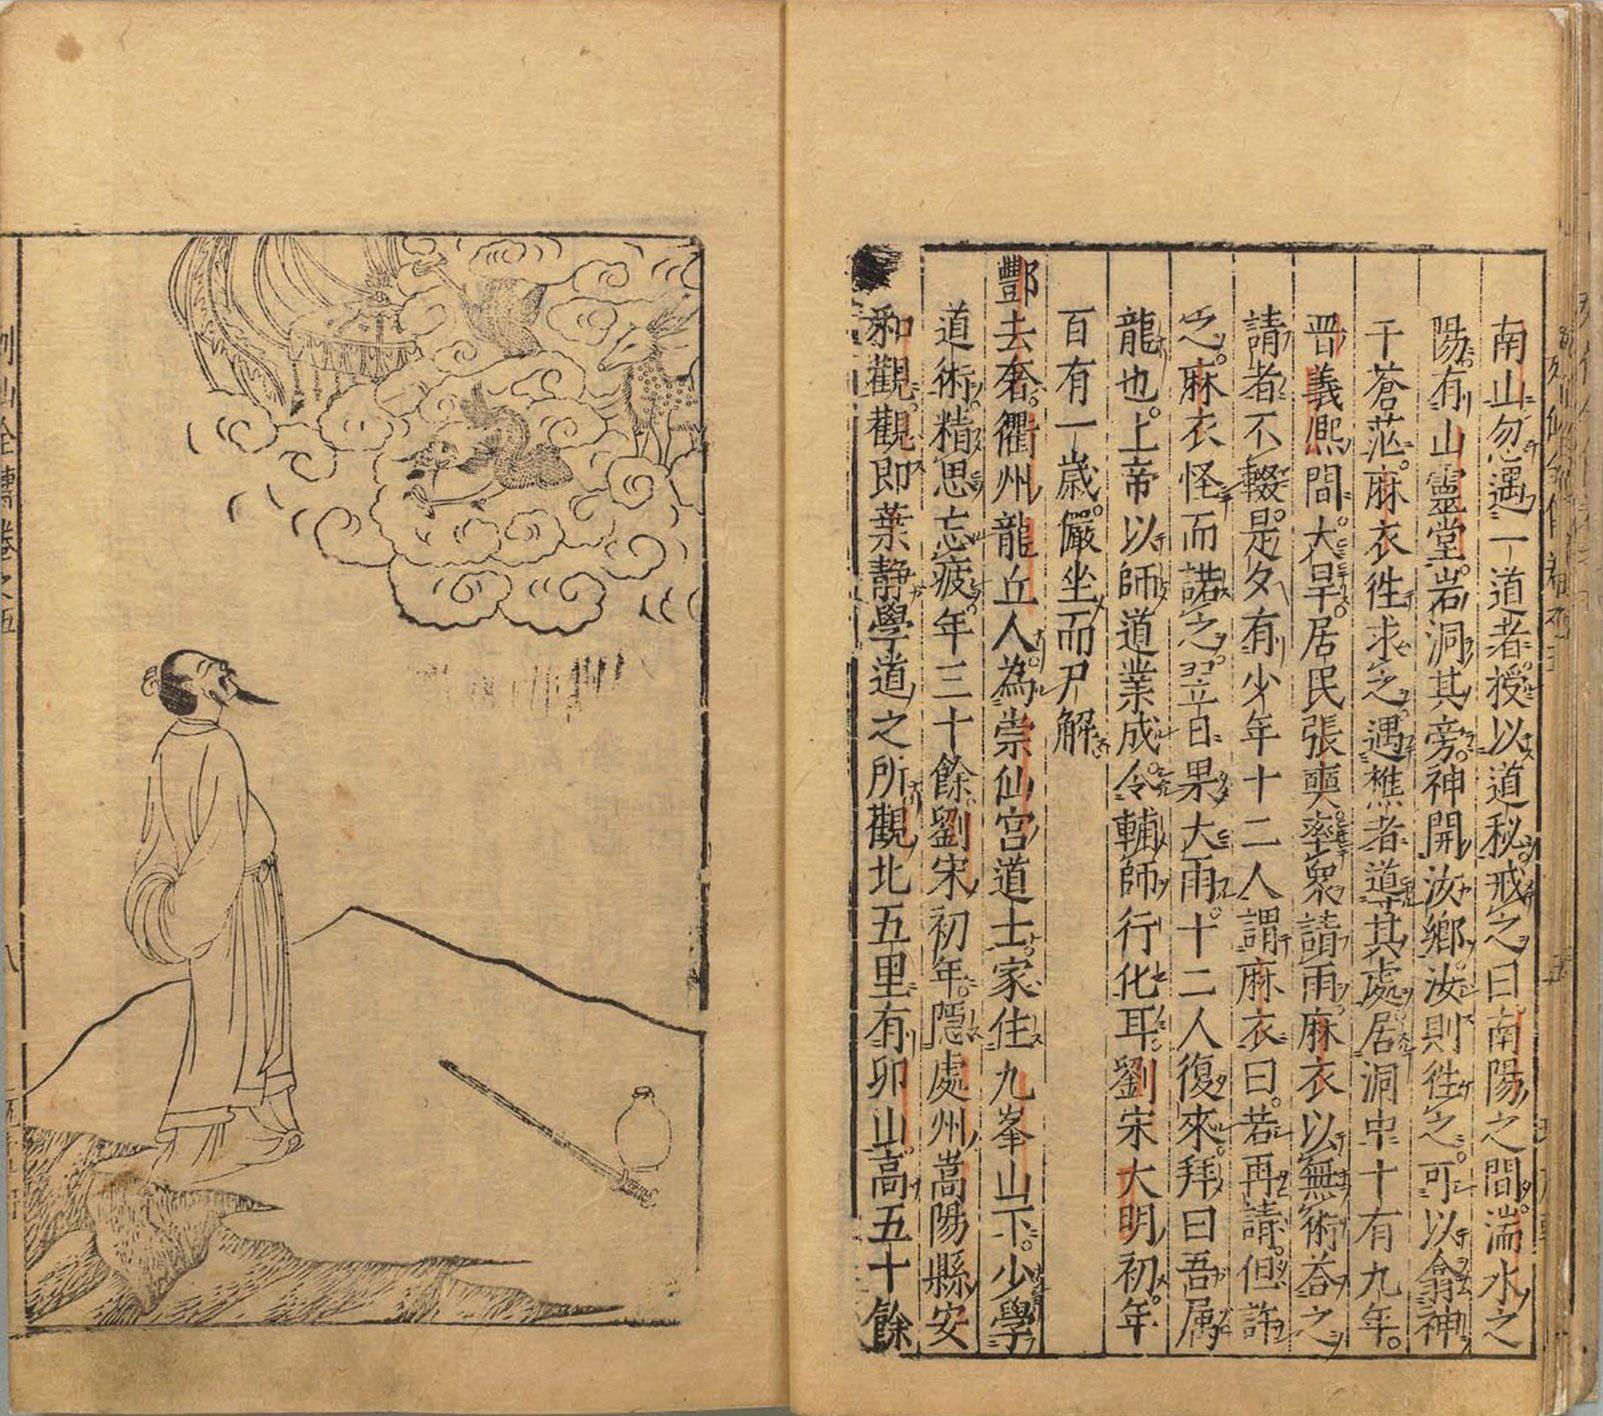 南山忽遇一道者授以道秘戒之曰南陽之間湍水之
陽有山靈堂岩洞其旁神開汝鄉汝則徃之可以翕神
于蒼茫麻衣徃求之遇樵者導其處居洞中十有九年
晋義熈間大旱居民張奭率衆請雨麻衣以無術荅之
請者不輟是夕有少年十二人謂麻衣曰若再請但許
之麻衣怪而諾之翌日果大雨十二人復來拜曰吾属
龍也上帝以師道業成令輔師行化耳劉宋大明初年
百有一歳儼坐而尸解
酆去奢衢州龍丘人為崇仙宫道士家住九峯山下少學
道術精思忘疲年三十餘劉宋初年隱處州嵩陽縣安
和觀觀即葉静學道之所觀北五里有卯山高五十餘
列仙全傳卷之五
八